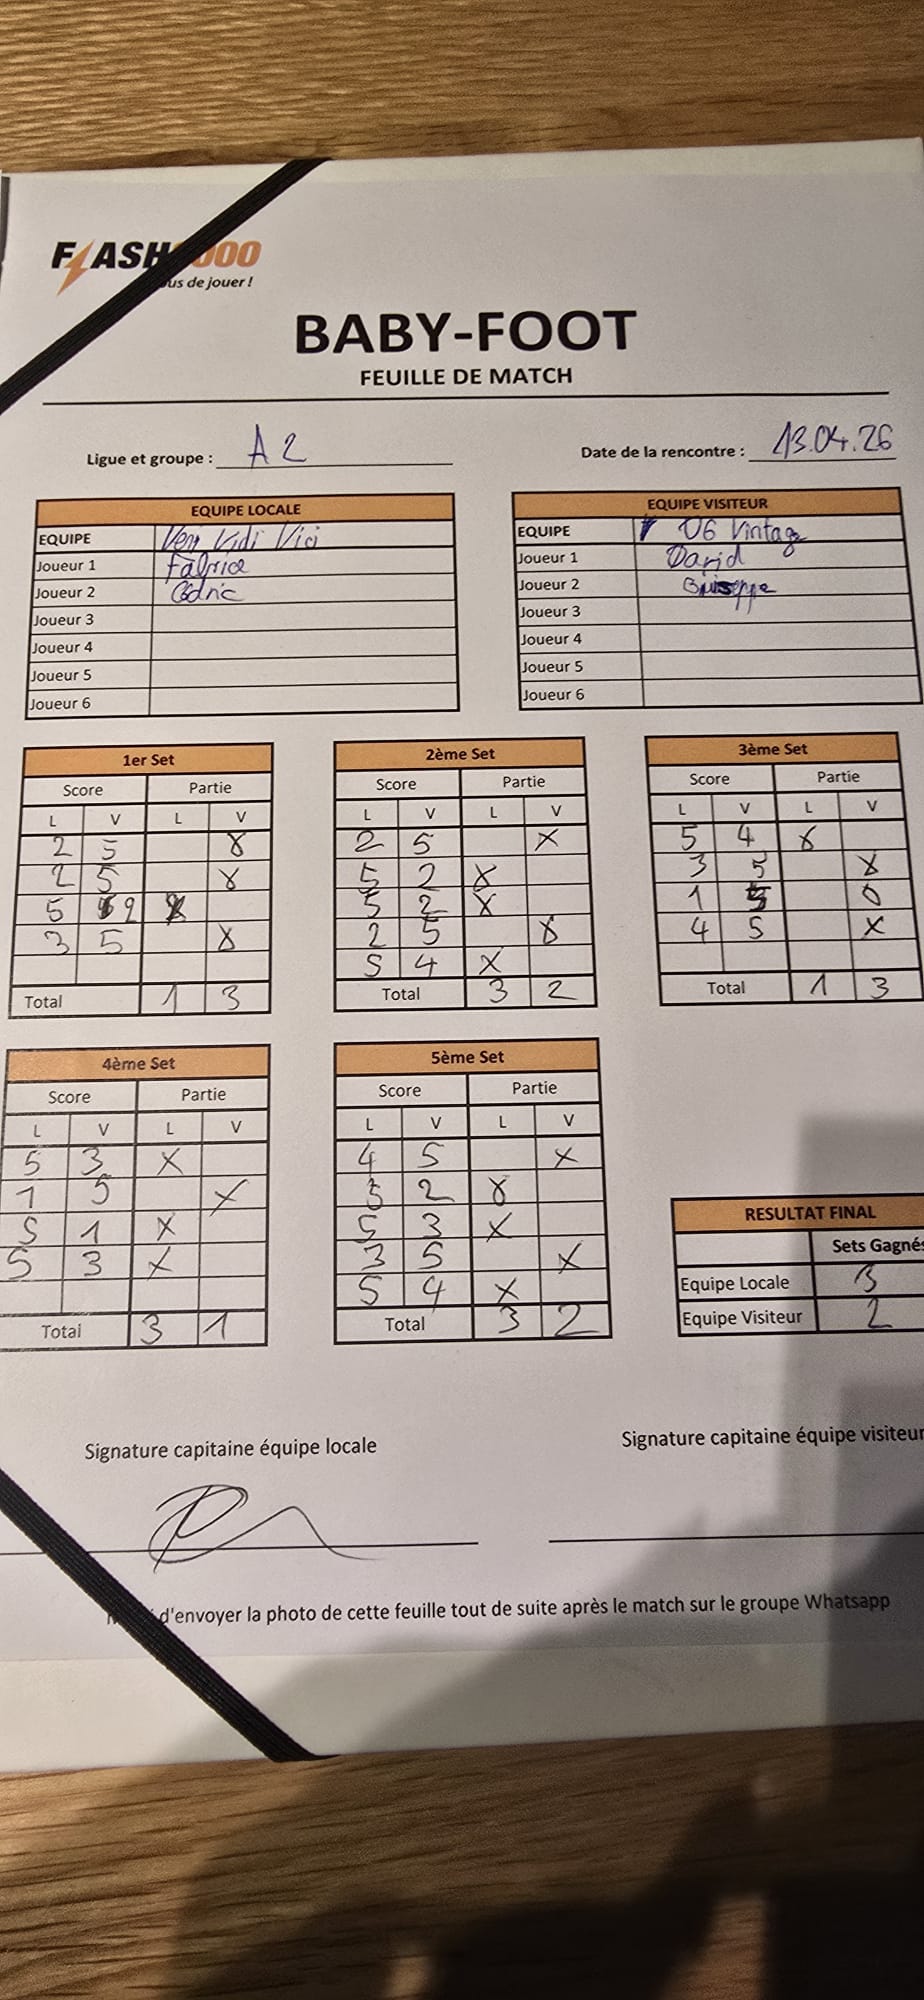 FLASH 000
us de jouer !
BABY-FOOT
FEUILLE DE MATCH
Ligue et groupe : A2
Date de la rencontre : 13.04.26
EQUIPE LOCALE
EQUIPE Veni Vidi Vici
Joueur 1 Fabrice
Joueur 2 Cédric
Joueur 3
Joueur 4
Joueur 5
Joueur 6
EQUIPE VISITEUR
EQUIPE U6 Vintage
Joueur 1 David
Joueur 2
Joueur 3
Joueur 4
Joueur 5
Joueur 6
1er Set
Score Partie
L V L V
2 5 X
2 5 X
5 2 X
3 5 X
Total 1 3
2ème Set
Score Partie
L V L V
2 5 X
5 2 X
5 2 X
2 5 X
5 4 X
Total 3 2
3ème Set
Score Partie
L V L V
5 4 X
3 5 X
1 5 0
4 5 X
Total 1 3
4ème Set
Score Partie
L V L V
5 3 X
1 5 X
5 1 X
5 3 X
Total 3 1
5ème Set
Score Partie
L V L V
4 5 X
5 2 X
5 3 X
3 5 X
5 4 X
Total 3 2
RESULTAT FINAL
Sets Gagnés
Equipe Locale 3
Equipe Visiteur 2
Signature capitaine équipe locale
Signature capitaine équipe visiteur
d'envoyer la photo de cette feuille tout de suite après le match sur le groupe Whatsapp